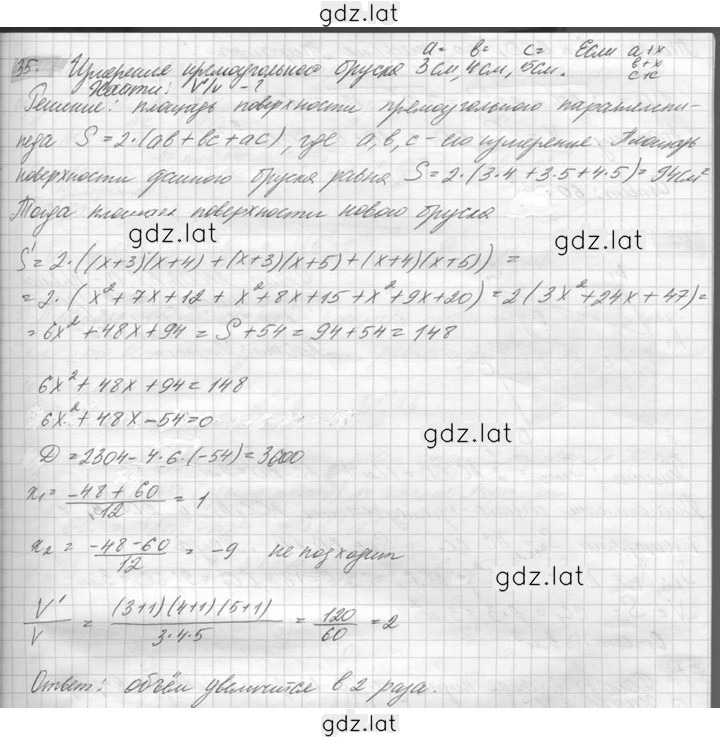 gdz.lat
a= в= c= Если a+x
35. Измерение прямоугольного бруска 3см, 4см, 5см. в+x
Найти: V'/V - ? c+x
Решение: площадь поверхности прямоугольного параллелепи-
педа S = 2·(ab+bc+ac), где a, b, c - его измерение. Площадь
поверхности данного бруска равна S = 2·(3·4+3·5+4·5) = 94см²
Тогда площадь поверхности нового бруска
gdz.lat
gdz.lat
S' = 2·((x+3)(x+4)+(x+3)(x+5)+(x+4)(x+5)) =
= 2·(x²+7x+12+x²+8x+15+x²+9x+20) = 2(3x²+24x+47) =
= 6x²+48x+94 = S+54 = 94+54 = 148
6x²+48x+94 = 148
6x²+48x-54=0
gdz.lat
D = 2304-4·6·(-54) = 3600
x₁ = (-48+60)/12 = 1
x₂ = (-48-60)/12 = -9 не подходит
gdz.lat
V'/V = (3+1)(4+1)(5+1)/3·4·5 = 120/60 = 2
Ответ: объём увеличится в 2 раза.
gdz.lat